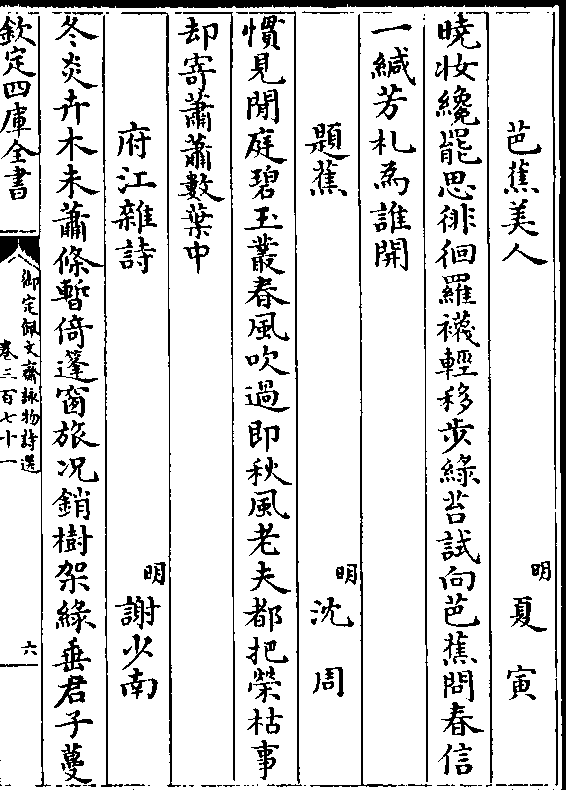 芭蕉美人　明　夏寅
曉妝纔罷思徘徊羅襪輕移步綠苔試向芭蕉問春信
一緘芳札為誰開
題蕉　明　沈周
慣見閒庭碧玉叢春風吹過即秋風老夫都把榮枯事
却寄蕭蕭數葉中
府江雜詩　明　謝少南
冬炎卉木未蕭條暫倚蓬窗旅况銷樹架綠垂君子蔓
欽定四庫全書
御定佩文齋詠物詩選
卷三百七十一
六